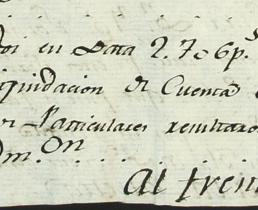 doi en Data 2.706p.s
iquidacion de Cuenta
or Particulares resultaro
Dm.on
al fren